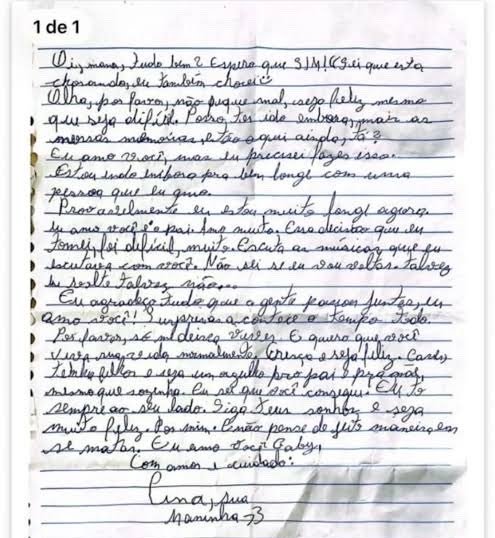 1 de 1
Oi, mana, tudo bem? Espero que SIM! (Sei que esta
chorando, eu também chorei
Olha, por favor, não fique mal, seja feliz mesmo
que seja difícil. Posso ter ido embora, mais as
nossas memórias, estão aqui ainda, tá?
Eu amo você, mas eu precisei fazer isso.
Estou indo embora pra bem longe com uma
pessoa que eu amo.
Provavelmente eu estou muito longe agora.
eu amo você e o pai Amo muito. Essa decisão que eu
tomei, foi difícil, muito. Escuta as músicas, que eu
escutava com você. Não sei se eu vou voltar. talvez
eu volte talvez não...
Eu agradeço tudo que a gente passou juntas, eu
amo você! Surpresas acontece o tempo todo.
Por favor, só me deixe viver. E quero que você
viva sua vida normalmente, cresça e seja feliz. Case,
tenha filhos e seja um orgulho pro pai e pra mãe,
mesmo que sozinha. Eu sei que você consegue. EU to
sempre ao seu lado. Siga seus sonhos e seja
muito feliz. Por mim. E não pense de jeito maneira em
se matar. Eu amo você Gaby,
Com amor e cuidado:
sua
Maninha <3